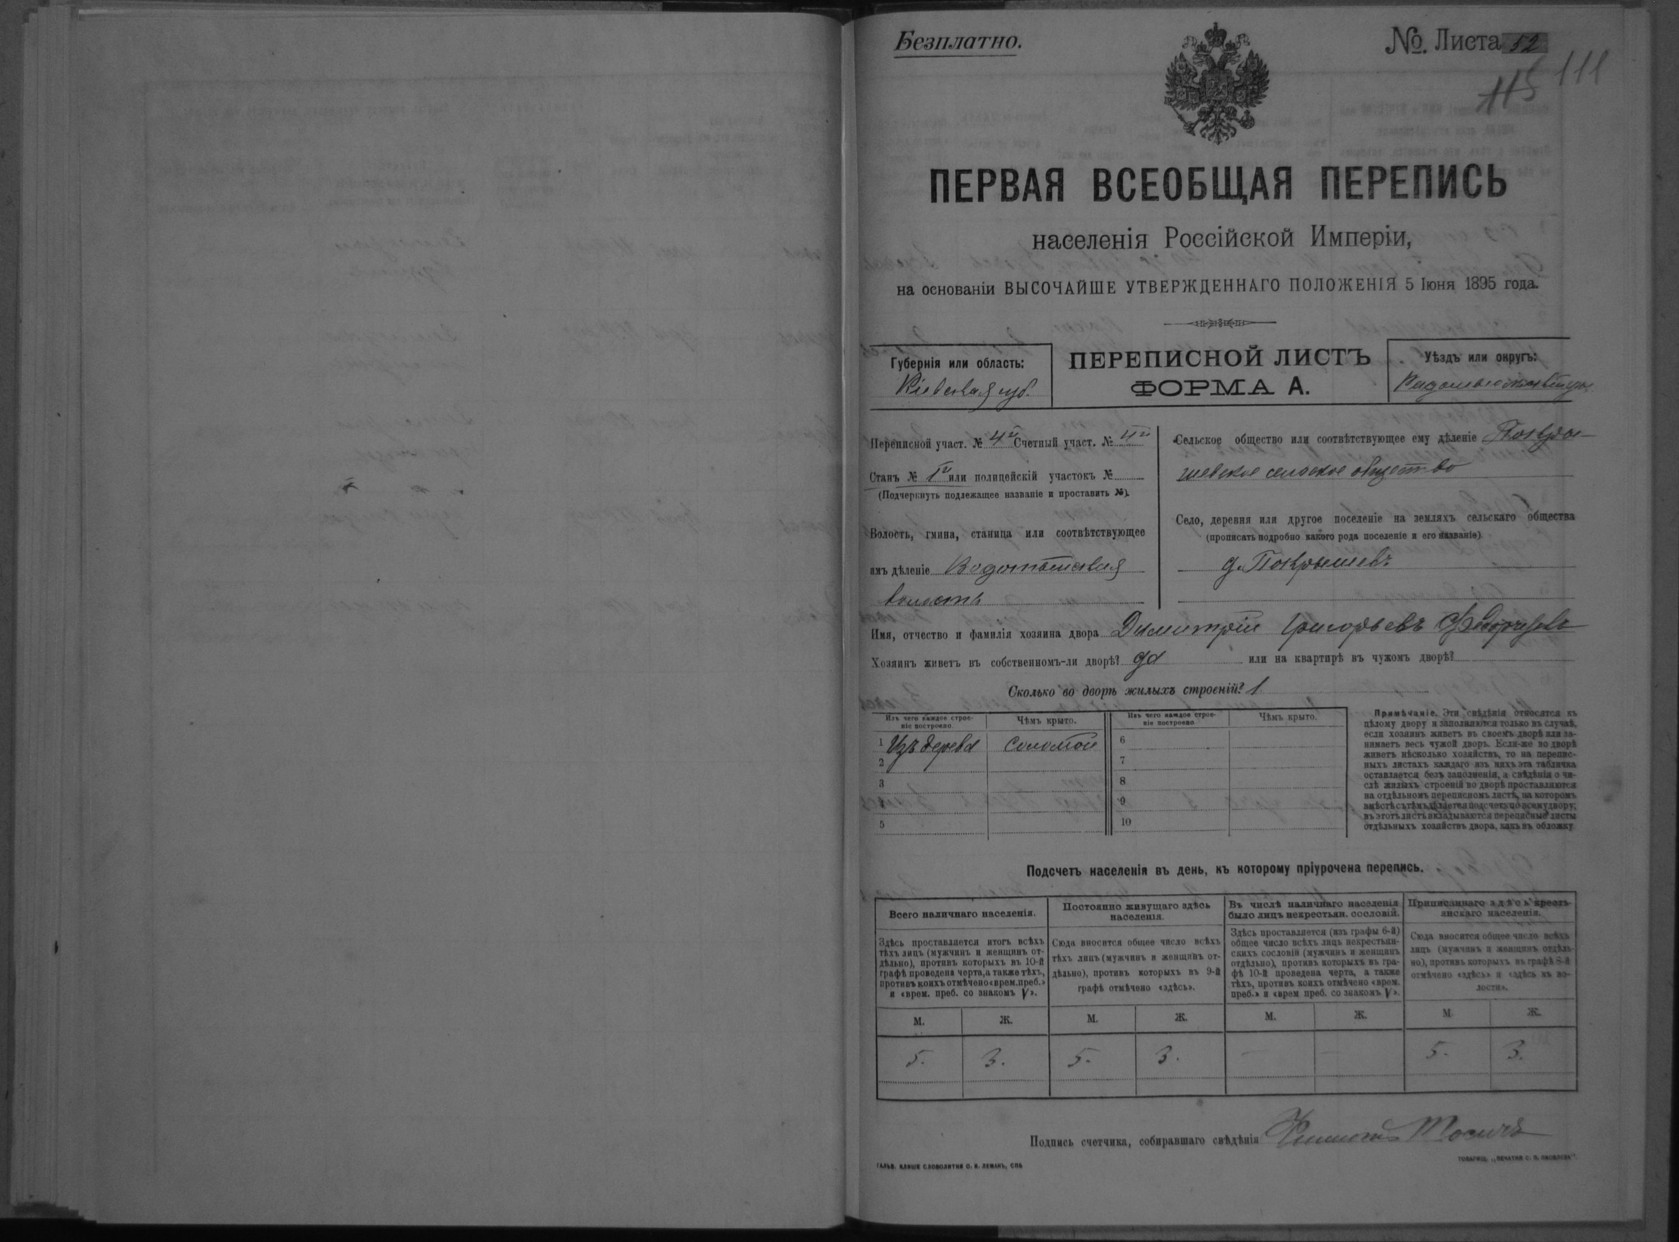 Безплатно.
№. Листа 52
115 111
ПЕРВАЯ ВСЕОБЩАЯ ПЕРЕПИСЬ
населенія Россійской Имперіи,
на основаніи ВЫСОЧАЙШЕ УТВЕРЖДЕННАГО ПОЛОЖЕНІЯ 5 Іюня 1895 года.
Губернія или область:
Кіевская губ.
ПЕРЕПИСНОЙ ЛИСТЪ
ФОРМА А.
Уѣздъ или округъ:
Переписной участ. № 4й Счетный участ. №
Станъ № 1й или полицейскій участокъ №
(Подчеркнуть подлежащее названіе и проставить №).
Волость, гмина, станица или соотвѣтствующее
имъ дѣленіе
волость
Сельское общество или соотвѣтствующее ему дѣленіе Покры-
шевское сельское общество
Село, деревня или другое поселеніе на земляхъ сельскаго общества
(прописать подробно какого рода поселеніе и его названіе)
д. Покрышевъ
Имя, отчество и фамилія хозяина двора Димитрій Григорьевъ
Хозяинъ живетъ въ собственномъ-ли дворѣ? да или на квартирѣ въ чужомъ дворѣ?
Сколько во дворѣ жилыхъ строеній? 1
Изъ чего каждое строе-
ніе построено.
Чѣмъ крыто.
Изъ чего каждое строе-
ніе построено.
Чѣмъ крыто.
1 Изъ дерева соломой
2
3
5
6
7
8
9
10
Примѣчаніе. Эти свѣдѣнія относятся къ
цѣлому двору и заполняются только въ случаѣ,
если хозяинъ живетъ въ своемъ дворѣ или за-
нимаетъ весь чужой дворъ. Если-же во дворѣ
живетъ нѣсколько хозяйствъ, то на перепис-
ныхъ листахъ каждаго изъ нихъ эта табличка
оставляется безъ заполненія, а свѣдѣнія о чи-
слѣ жилыхъ строеній во дворѣ проставляются
на отдѣльномъ переписномъ листѣ, на которомъ
вмѣстѣ съ тѣмъ дѣлается подсчетъ по всему двору;
въ этотъ листъ вкладываются переписные листы
отдѣльныхъ хозяйствъ двора, какъ въ обложку
Подсчетъ населенія въ день, къ которому пріурочена перепись.
Всего наличнаго населенія.
Здѣсь проставляется итогъ всѣхъ
тѣхъ лицъ (мужчинъ и женщинъ от-
дѣльно), противъ которыхъ въ 10-й
графѣ проведена черта, а также тѣхъ,
противъ коихъ отмѣчено «врем. преб.»
и «врем. преб. со знакомъ V».
Постоянно живущаго здѣсь
населенія.
Сюда вносится общее число всѣхъ
тѣхъ лицъ (мужчинъ и женщинъ от-
дѣльно), противъ которыхъ въ 9-й
графѣ отмѣчено «здѣсь».
Въ числѣ наличнаго населенія
было лицъ некрестьян. сословій.
Здѣсь проставляется (изъ графы 6-й)
общее число всѣхъ лицъ некрестьян-
скихъ сословій (мужчинъ и женщинъ
отдѣльно), противъ которыхъ въ гра-
фѣ 10-й проведена черта, а также
тѣхъ, противъ коихъ отмѣчено «врем.
преб.» и «врем преб. со знакомъ V».
Приписаннаго здѣсь кресть-
янскаго населенія.
Сюда вносится общее число всѣхъ
лицъ (мужчинъ и женщинъ отдѣль-
но), противъ которыхъ въ графѣ 8-й
отмѣчено «здѣсь» и «здѣсь въ во-
лости».
М. Ж. М. Ж. М. Ж. М. Ж.
5. 3. 5. 3. — — 5. 3.
Подпись счетчика, собиравшаго свѣдѣнія
ГАЛЬВ. КЛИШЕ СЛОВОЛИТНИ О. И. ЛЕМАНЪ, СПБ